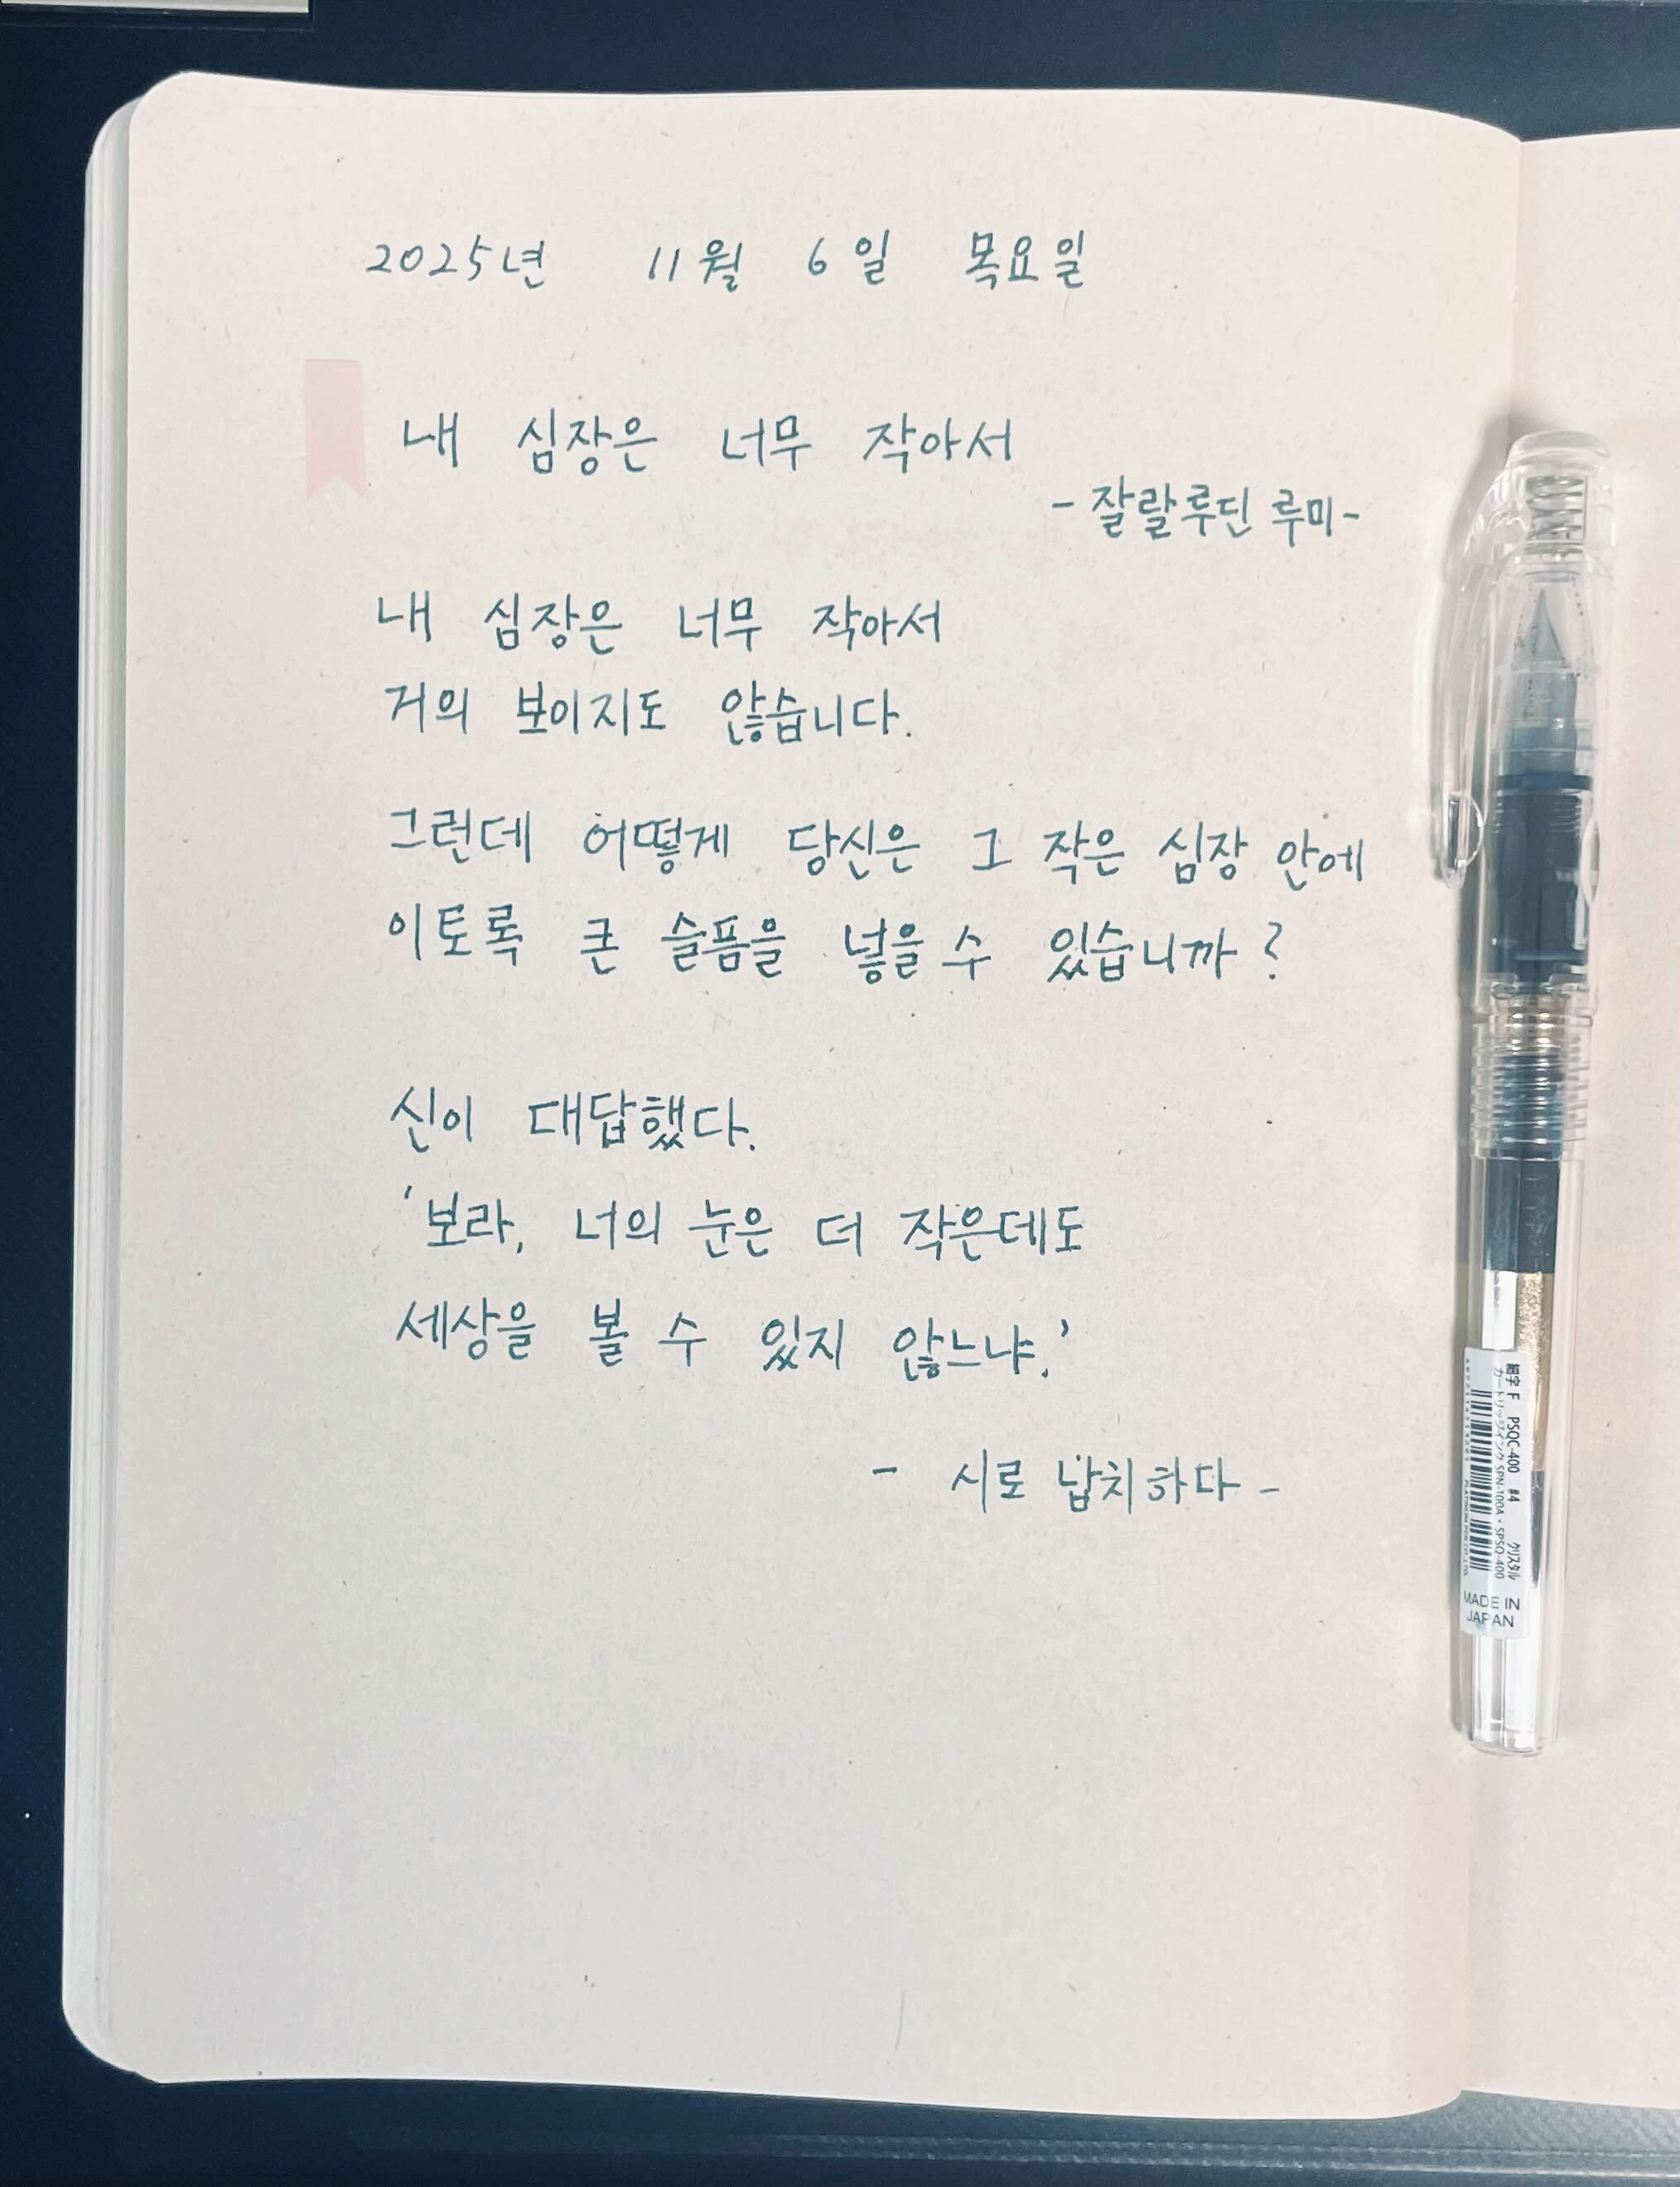 2025년 11월 6일 목요일
내 심장은 너무 작아서
- 잘랄루딘 루미 -
내 심장은 너무 작아서
거의 보이지도 않습니다.
그런데 어떻게 당신은 그 작은 심장 안에
이토록 큰 슬픔을 넣을 수 있습니까?
신이 대답했다.
'보라, 너의 눈은 더 작은데도
세상을 볼 수 있지 않느냐.'
- 시로 납치하다 -
細字 F PSQC-400 #4 クリスタル
カートリッジインク SPN-100A・SPSQ-400
MADE IN
JAPAN